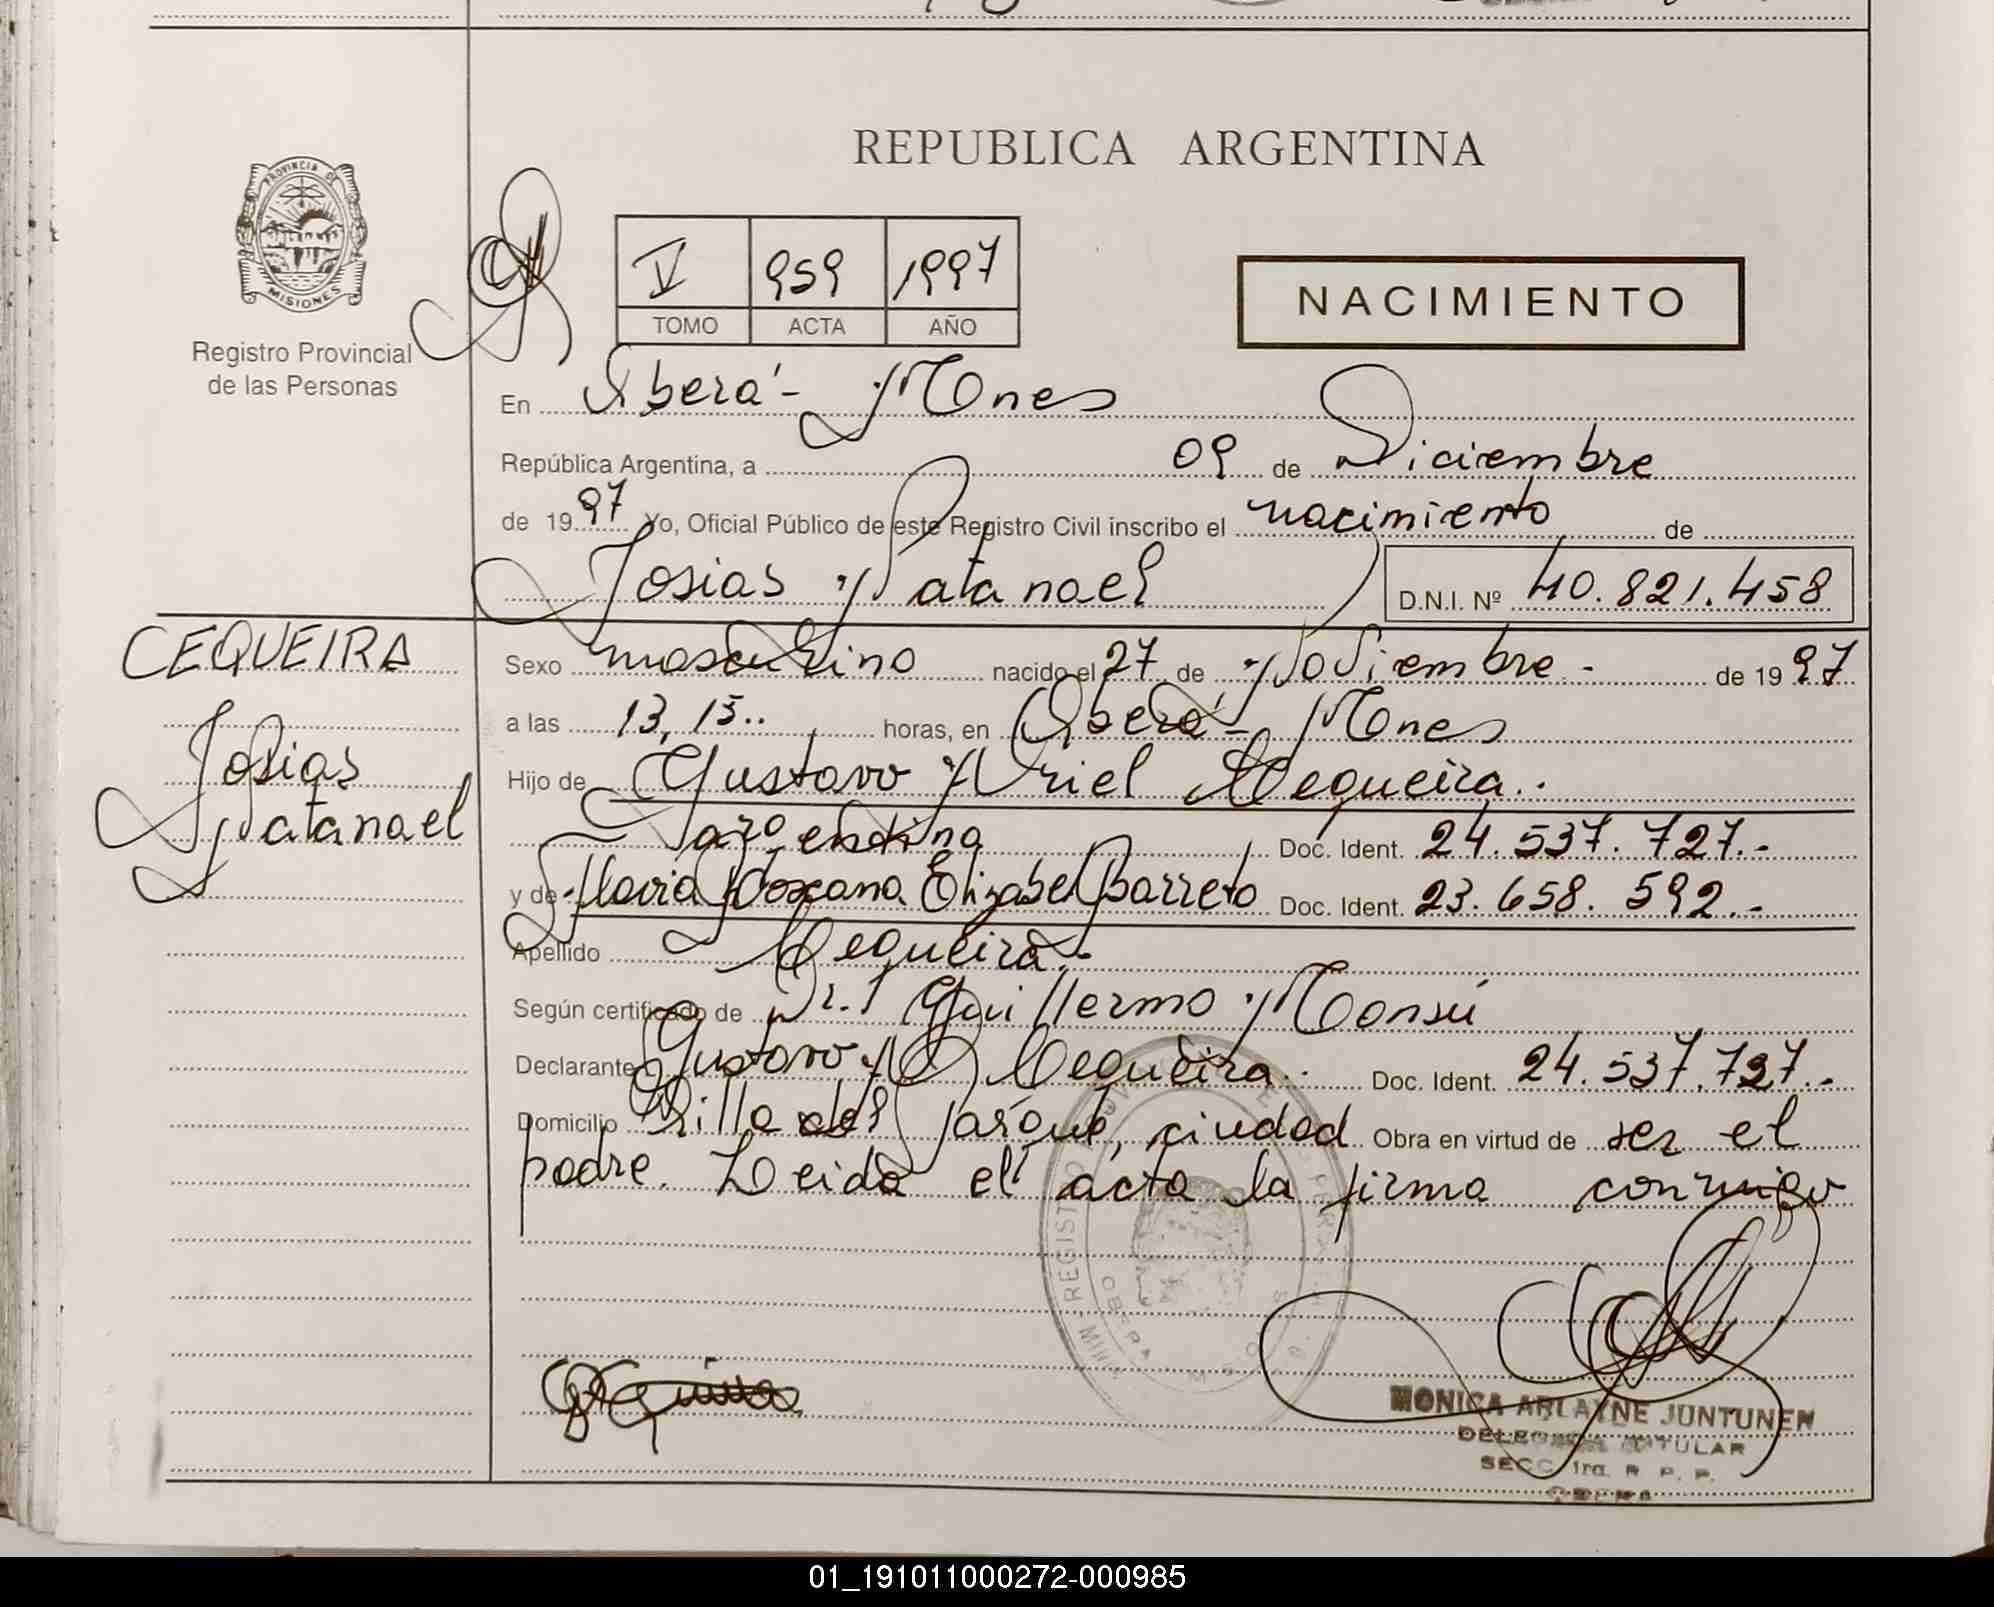 REPUBLICA ARGENTINA
PROVINCIA DE
MISIONES
Registro Provincial
de las Personas
V 959 1997
TOMO ACTA AÑO
NACIMIENTO
En Oberá - Mnes
República Argentina, a 09 de Diciembre
de 1997 Yo, Oficial Público de este Registro Civil inscribo el nacimiento de
Josias Natanael
D.N.I. Nº 40.821.458
CEQUEIRA
Josias
Natanael
Sexo masculino nacido el 27 de Noviembre - de 1997
a las 13,15.. horas, en Oberá - Mnes
Hijo de Gustavo Uriel Cequeira..
argentina Doc. Ident. 24.537.727.-
y de Flavia Roxana Elizabet Barreto Doc. Ident. 23.658.592.-
Apellido Cequeira.-
Según certificado de Dr. Guillermo Monsú
Declarante Gustavo U. Cequeira.. Doc. Ident. 24.537.727..
Domicilio Villa del Parque, ciudad Obra en virtud de ser el
padre. Leida el acta la firma conmigo
MONICA ARLAYNE JUNTUNEN
DELEGADA TITULAR
SECC. 1ra. R. P. P.
OBERA
01_191011000272-000985